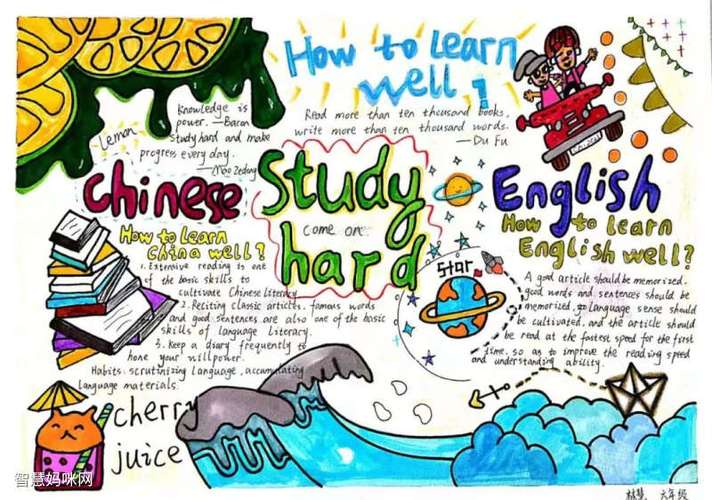 How to learn
well!
Knowledge is
power. —Bacon
Study hard and make
progress every day.
—Mao Zedong
Lemon
Read more than ten thousand books,
write more than ten thousand words.
—Du Fu
Chinese
How to learn
China well?
1. Extensive reading is one
of the basic skills to
cultivate Chinese literacy
2. Reciting classic articles, famous words
and good sentences are also one of the basic
skills of language literacy.
3. Keep a diary frequently to
hone your willpower.
Habits: scrutinizing language, accumulating
language materials.
Study
come on
hard
English
How to learn
English well?
Star
A good article should be memorized,
good words and sentences should be
memorized, so language sense should
be cultivated, and the article should
be read at the fastest speed for the first
time, so as to improve the reading speed
and understanding ability.
cherry
juice
智慧妈咪网
六年级